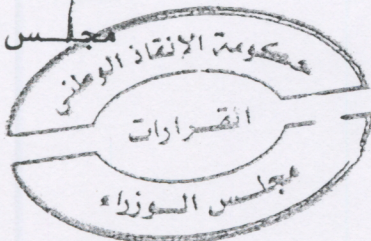 مجلس
حكومة الإنقاذ الوطني
القرارات
مجلس الوزراء